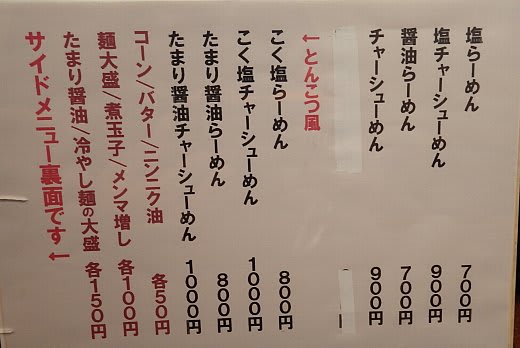 塩らーめん 700円
塩チャーシューめん 900円
醤油らーめん 700円
チャーシューめん 900円
←とんこつ風
こく塩らーめん 800円
こく塩チャーシューめん 1000円
たまり醤油らーめん 800円
たまり醤油チャーシューめん 1000円
コーン/バター/ニンニク油 各50円
麺大盛/煮玉子/メンマ増し 各100円
たまり醤油/冷やし麺の大盛 各150円
サイドメニュー裏面です←